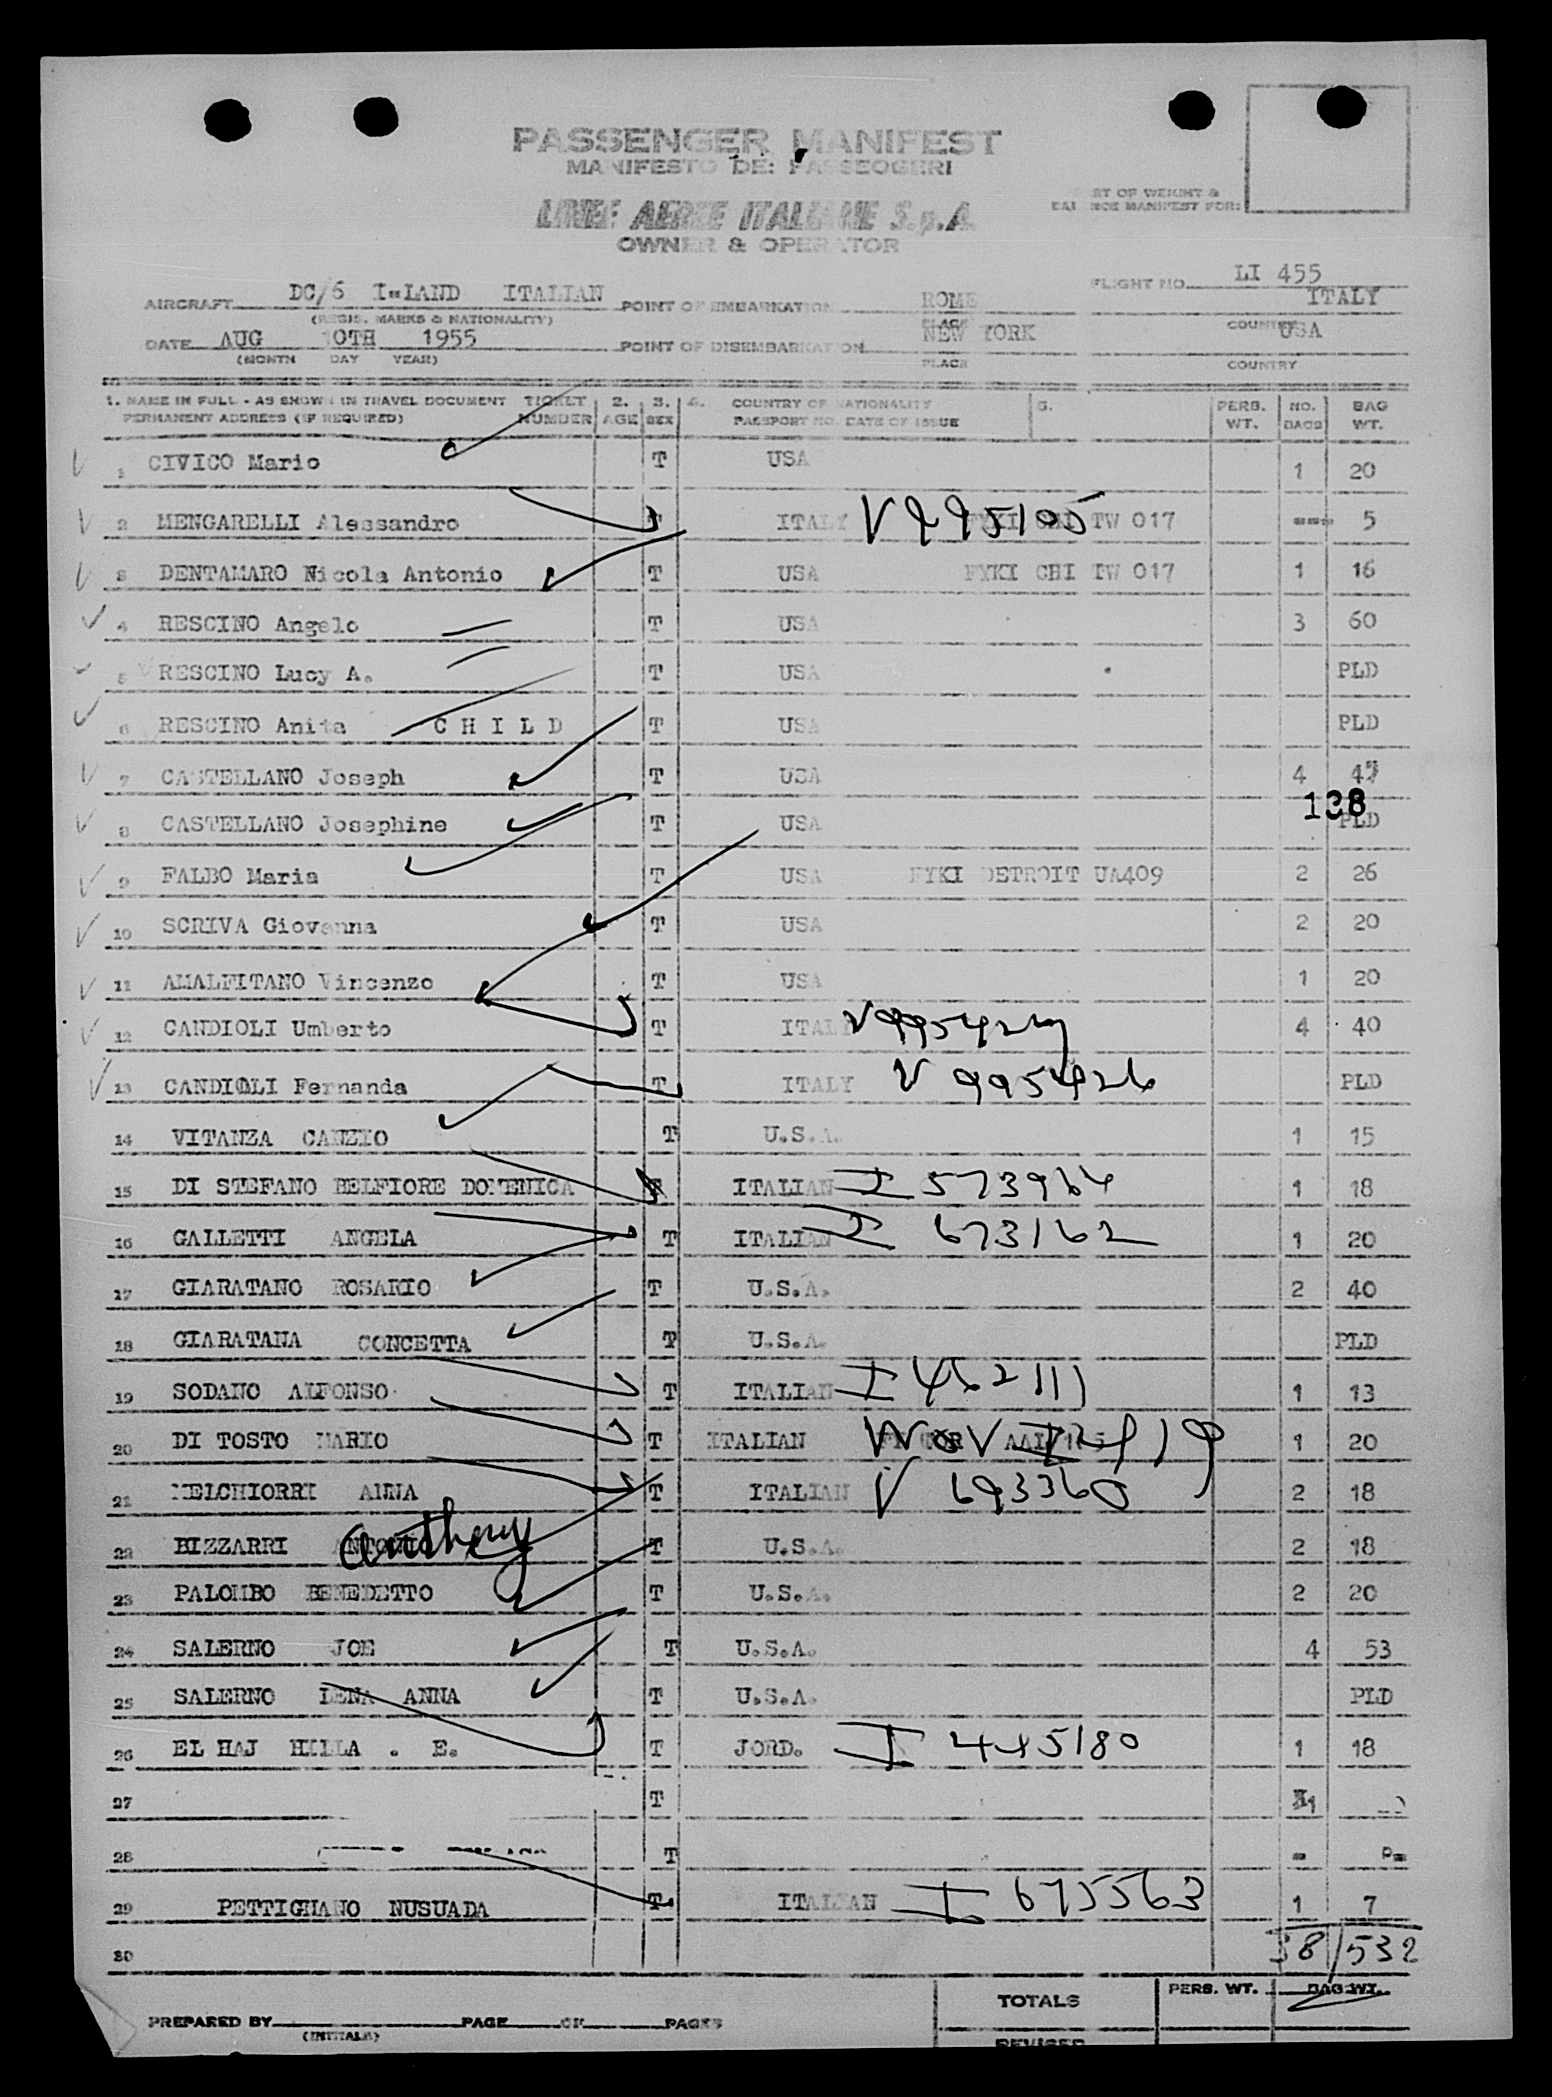 PASSENGER MANIFEST
MANIFESTO DEI PASSEOGERI
LINEE AEREE ITALIANE S.p.A.
OWNER & OPERATOR
PART OF WEIGHT &
BALANCE MANIFEST FOR:
FLIGHT NO. LI 455
AIRCRAFT DC/6 I-LAND ITALIAN POINT OF EMBARKATION ROME ITALY
(REGIS. MARKS & NATIONALITY) PLACE COUNTRY
DATE AUG 10TH 1955 POINT OF DISEMBARKATION NEW YORK USA
(MONTH DAY YEAR) PLACE COUNTRY
1. NAME IN FULL - AS SHOWN IN TRAVEL DOCUMENT TICKET 2. 3. 4. COUNTRY OF NATIONALITY 5. PERS. NO. BAG
PERMANENT ADDRESS (IF REQUIRED) NUMBER AGE SEX PASSPORT NO. DATE OF ISSUE WT. BAGS WT.
1 CIVICO Mario T USA 1 20
2 MENGARELLI Alessandro T ITALY V 995105 FYKI CHI TW 017 ---- 5
3 DENTAMARO Nicola Antonio T USA FYKI CHI TW 017 1 16
4 RESCINO Angelo T USA 3 60
5 RESCINO Lucy A. T USA PLD
6 RESCINO Anita C H I L D T USA PLD
7 CASTELLANO Joseph T USA 4 45
138
8 CASTELLANO Josephine T USA PLD
9 FALBO Maria T USA FYKI DETROIT UA409 2 26
10 SCRIVA Giovanna T USA 2 20
11 AMALFITANO Vincenzo T USA 1 20
12 CANDIOLI Umberto T ITALY 4 40
13 CANDIOLI Fernanda T ITALY V 995426 PLD
14 VITANZA CANZIO T U.S.A. 1 15
15 DI STEFANO BELFIORE DOMENICA T ITALIAN I 573964 1 18
16 GALLETTI ANGELA T ITALIAN I 673162 1 20
17 GIARATANO ROSARIO T U.S.A. 2 40
18 GIARATANA CONCETTA T U.S.A. PLD
19 SODANO ALFONSO T ITALIAN I 462111 1 13
20 DI TOSTO MARIO T ITALIAN 1 20
21 MELCHIORRI ANNA T ITALIAN V 693360 2 18
22 BIZZARRI Anthony T U.S.A. 2 18
23 PALOMBO BENEDETTO T U.S.A. 2 20
24 SALERNO JOE T U.S.A. 4 53
25 SALERNO LENA ANNA T U.S.A. PLD
26 EL HAJ HILLA . E. T JORD. I 445180 1 18
27 T 1
28 T -
29 PETTIGNANO NUSUADA T ITALIAN I 675563 1 7
30 38/532
TOTALS PERS. WT. BAG WT.
PREPARED BY PAGE OF PAGES
(INITIALS) REVISED